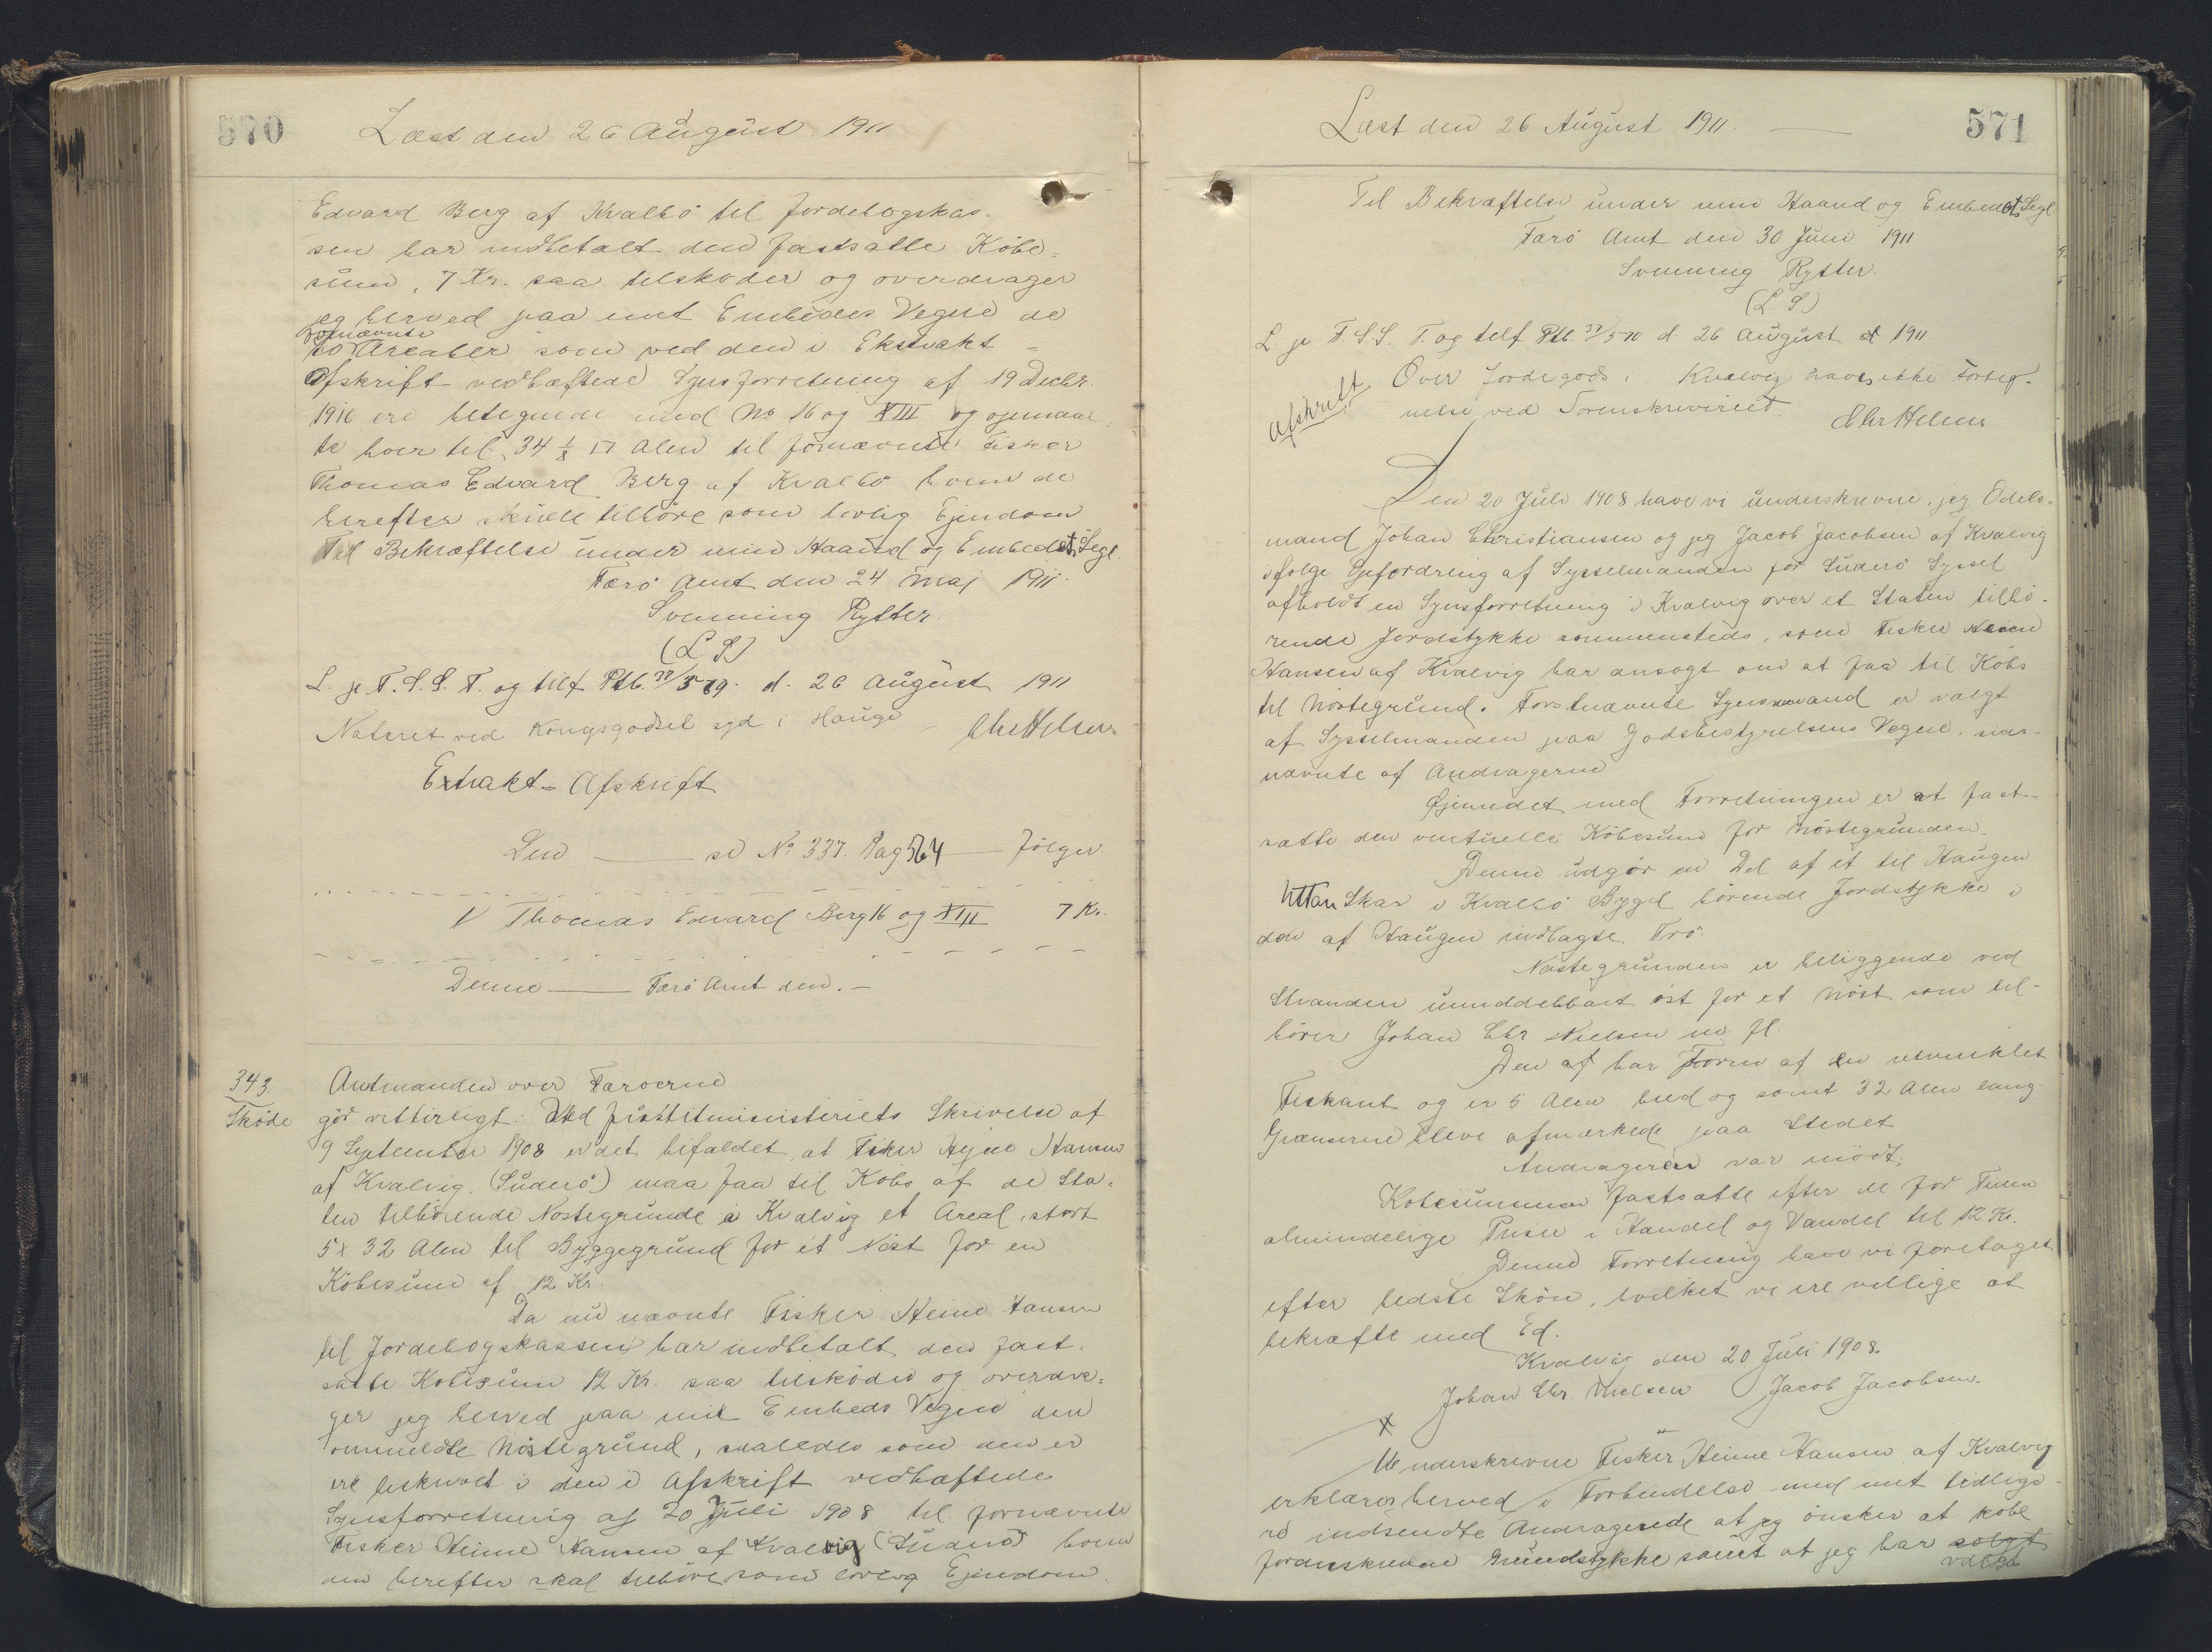 570
Læst den 26 August 1911
Edvard Berg af Kvalbö til Jordebogskas-
sen har indbetalt den fastsatte Köbe=
sum, 7 Kr. saa tilskøder og overdrager
jeg herved paa mit Embedes Vegne de
fornævnte
to Arealer som ved den i Ekstrakt=
Afskrift vedhæftede Synsforretning af 19 Decbr.
1910 ere betegnede med No 16 og XIII og opmaal=
te hver til 34 1/8 □ Alen til fornævnte Fisker
Thomas Edvard Berg af Kvalbö hvem de
herefter skulle tilhöre som lovlig Ejendom
Til Bekræftelse under min Haand og Embedets Segl.
Færö Amt den 24 Maj 1911.
Svenning Rytter.
(L. S.)
L. p. F. S. S. T. og tilf Ptb. 37/569. d. 26 August 1911
Noteret ved Kongsgodset syd i Hauge
Extrakt=Afskrift
Den ——— se No 337. Pag 564 —— følger
V Thomas Edvard Berg 16 og XIII 7 Kr.
Denne ——— Færö Amt den. —
343.
Sköde
Amtmanden over Færøerne
gör vitterligt: Ved Justitsministeriets Skrivelse af
9 September 1908 er det bifaldet, at Fisker Hejne Hansen
af Kvalvig, (Suderö) maa faa til Köbs af de Sta-
ten tilhörende Nöstegrunde i Kvalvig et Areal, stort
5 x 32 Alen til Byggegrund for et Nöst for en
Köbesum af 12 Kr.
Da nu nævnte Fisker Heine Hansen
til Jordebogskassen har indbetalt den fast-
satte Köbesum 12 Kr. saa tilsköder og overdra=
ger jeg herved paa mit Embeds Vegne den
ommeldte Nöstegrund, saaledes som den er
ere beskrevet i den i Afskrift vedhæftede
Synsforretning af 20 Juli 1908 til fornævnte
Fisker Heine Hansen af Kvalvig (Suderö) hvem
den herefter skal tilhöre som lovlig Ejendom.
571
Læst den 26 August 1911.
Til Bekræftelse under min Haand og Embedets Segl
Færö Amt den 30 Juni 1911
Svenning Rytter.
(L S)
L. p F. S. S. T. og tilf Ptb. 37/570 d. 26 August 1911
Over Jordegods i Kvalvig haves ikke Forteg-
nelse ved Sorenskriveriet.
Afskrift
Den 20 Juli 1908 have vi underskrevne, jeg Odels-
mand Johan Christiansen og jeg Jacob Jacobsen af Kvalvig
ifølge Opfordring af Sysselmanden for Suderö Syssel
afholdt en Synsforretning i Kvalvig over et Staten tilhö-
rende Jordstykke sammesteds, som Fisker
Hansen af Kvalvig har ansøgt om at faa til Köbs
til Nöstegrund. Førstnævnte Synsmand er valgt
af Sysselmanden paa Godsbestyrelsens Vegne,
nævnte af Andrageren
Øjemedet med Forretningen er at fast-
sætte den eventuelle Köbesum for Nöstegrunden.
Denne udgör en Del af et til Haugen
Uttan Skar i Kvalbö Bygd hörende Jordstykke i
den af Haugen indlagte Trö.
Nöstegrunden er beliggende ved
Stranden umiddelbart öst for et Nöst som til-
hörer Johan Chr Nielsen m fl.
Den af har Form af en retvinklet
Firkant og er 5 Alen bred og samt 32 Alen lang.
Grænserne bleve afmærkede paa Stedet
Andrageren var mödt.
Köbesummen fastsatte efter de for Tiden
almindelige Priser i Handel og Vandel til 12 Kr.
Denne Forretning have vi foretaget
efter bedste Skön, hvilket vi ere villige at
bekræfte med Ed.
Kvalvig den 20 Juli 1908.
Johan Chr. Nielsen Jacob Jacobsen.
X
Underskrevne Fisker Heine Hansen af Kvalvig
erklærer herved i Forbindelse med mit tidlige-
re indsendte Andragende at jeg önsker at köbe
foranskrevne Grundstykke samt at jeg har solgt
valgt